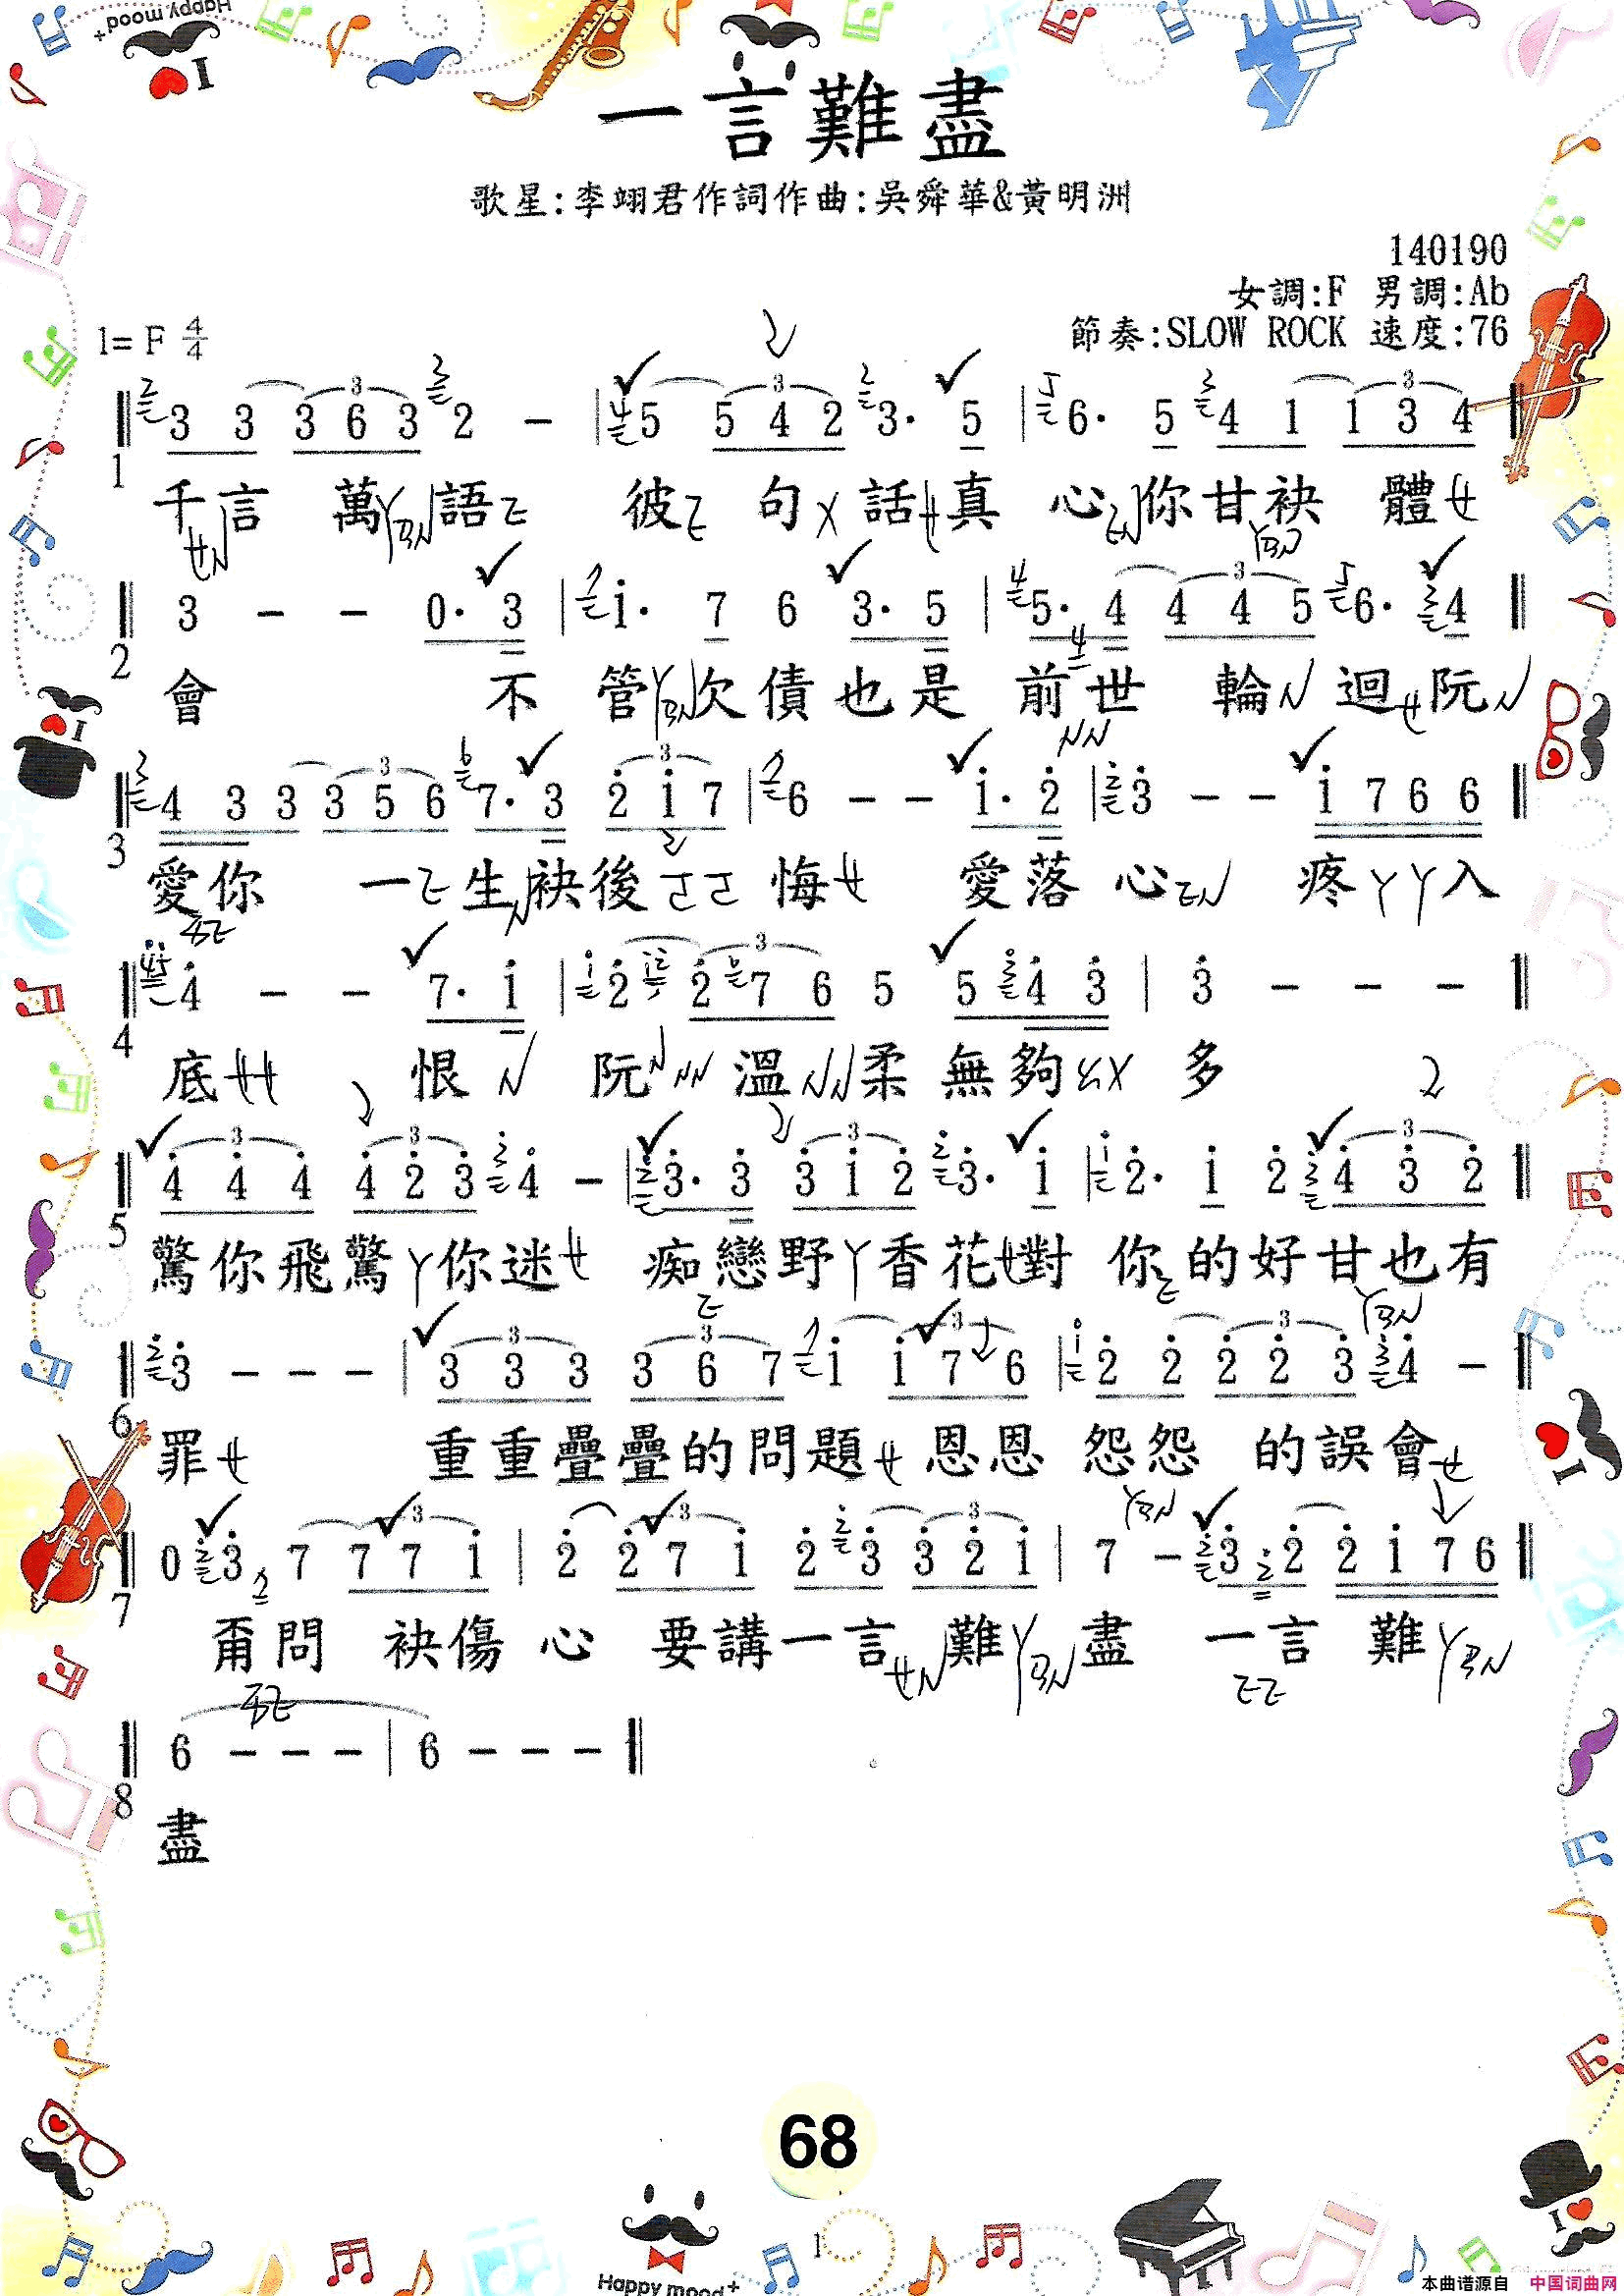 Happy mood+
I
一言難盡
歌星:李翊君作詞作曲:吳舜華&黃明洲
140190
女調:F 男調:Ab
1= F 4/4
節奏:SLOW ROCK 速度:76
3 3 3 6 3 2 - | 5 5 4 2 3· 5 | 6· 5 4 1 1 3 4
1
千言 萬語 彼 句 話真 心 你甘袂 體
3 - - 0· 3 | i· 7 6 3· 5 | 5· 4 4 4 5 6· 4
2
會 不 管 欠債也是 前世 輪 迴 阮
4 3 3 3 5 6 7· 3 2 i 7 | 6 - - i· 2 | 3 - - i 7 6 6
3
愛你 一 生 袂後 悔 愛落 心 疼 入
4 - - 7· i | 2 2 7 6 5 5 4 3 | 3 - - -
4
底 恨 阮 溫 柔無夠 多
4 4 4 4 2 3 4 - | 3· 3 3 i 2 3· i | 2· i 2 4 3 2
5
驚你飛驚 你迷 痴戀野 香花 對 你 的好甘也有
3 - - - | 3 3 3 3 6 7 i i 7 6 | 2 2 2 2 3 4 -
6
罪 重重疊疊的問題 恩恩 怨怨 的誤會
0 3 7 7 7 i | 2 2 7 i 2 3 3 2 i | 7 - 3 2 2 i 7 6
7
甭問 袂傷 心 要講一言 難 盡 一言 難
6 - - - | 6 - - -
8
盡
68
1
Happy mood+
本曲谱源自 中国词曲网